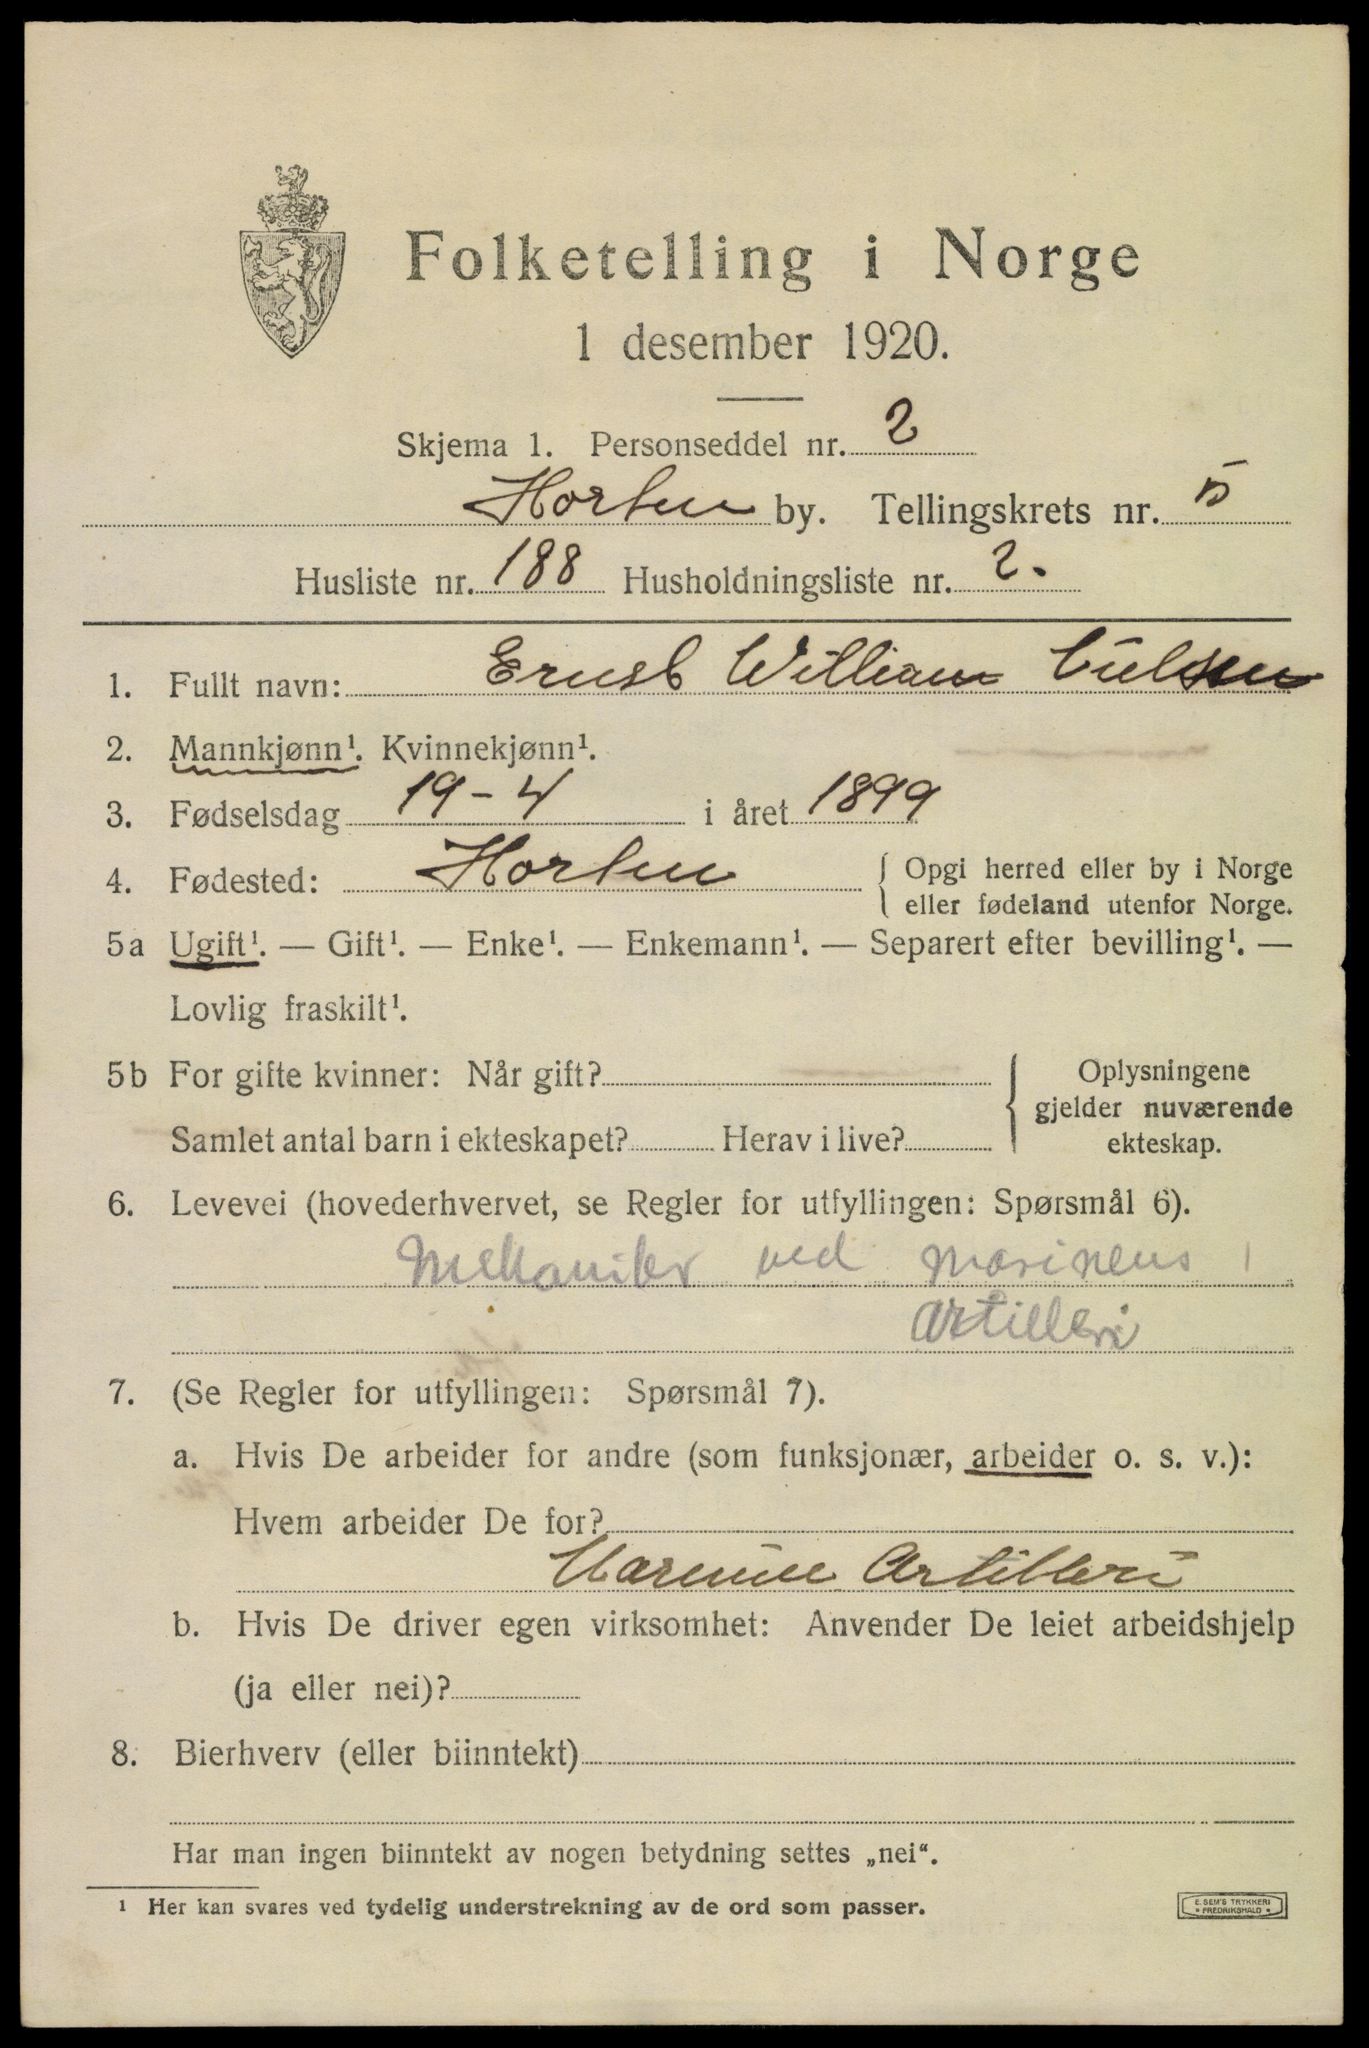 Folketelling i Norge
1 desember 1920.
Skjema 1. Personseddel nr. 2
Horten by. Tellingskrets nr. 5
Husliste nr. 188 Husholdningsliste nr. 2.
1. Fullt navn: Ernst William Nielsen
2. Mannkjønn¹. Kvinnekjønn¹.
3. Fødselsdag 19-4 i året 1899
4. Fødested: Horten { Opgi herred eller by i Norge
eller fødeland utenfor Norge.
5a Ugift¹. — Gift¹. — Enke¹. — Enkemann¹. — Separert efter bevilling¹. —
Lovlig fraskilt¹.
5b For gifte kvinner: Når gift? { Oplysningene
gjelder nuværende
Samlet antal barn i ekteskapet? Herav i live? ekteskap.
6. Levevei (hovederhvervet, se Regler for utfyllingen: Spørsmål 6).
Mekaniker ved marinens
Artilleri
7. (Se Regler for utfyllingen: Spørsmål 7).
a. Hvis De arbeider for andre (som funksjonær, arbeider o. s. v.):
Hvem arbeider De for?
Marinens Artilleri
b. Hvis De driver egen virksomhet: Anvender De leiet arbeidshjelp
(ja eller nei)?
8. Bierhverv (eller biinntekt)
Har man ingen biinntekt av nogen betydning settes „nei“.
¹ Her kan svares ved tydelig understrekning av de ord som passer.
E. SEM'S TRYKKERI
• FREDRIKSHALD •